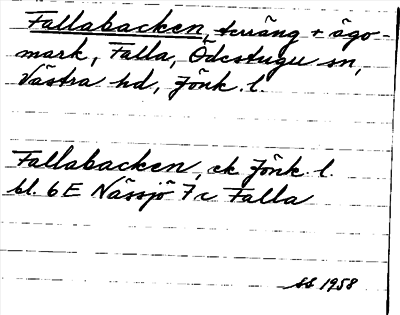 Fallabacken, tuväng + ägo-
mark, Falla, Ödestugu sn,
Västra hd, Jönk. l.
Fallabacken, ek Jönk. l.
bl. 6E Nässjö 7c Falla
SS 1958